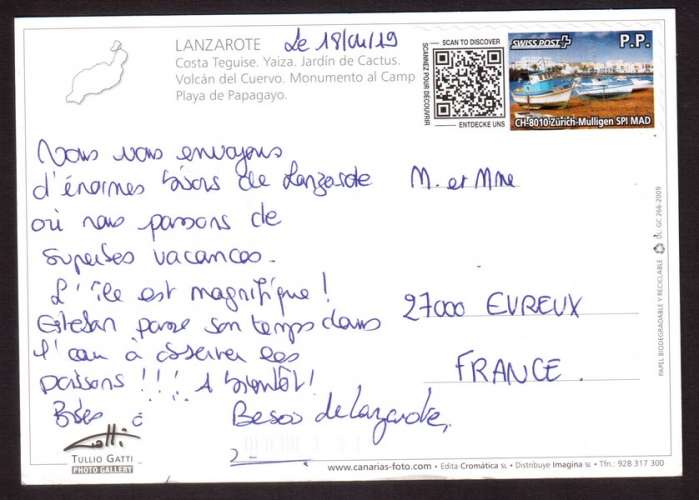 LANZAROTE
Costa Teguise. Yaiza. Jardín de Cactus.
Volcán del Cuervo. Monumento al Camp
Playa de Papagayo.
Le 18/04/19
SCAN TO DISCOVER
SCANNEZ POUR DÉCOUVRIR
ENTDECKE UNS
SWISS POST
P.P.
CH-8010 Zürich-Mulligen SPI MAD
Nous vous envoyons
d'énormes bisous de Lanzarote
où nous passons de
superbes vacances.
L'île est magnifique !
Esteban passe son temps dans
l'eau à observer les
poissons !!! A bientôt !
Besos de Lanzarote,
M. et Mme
27000 EVREUX
FRANCE.
PAPEL BIODEGRADABLE Y RECICLABLE
DL: GC 266-2009
Gatti
TULLIO GATTI
PHOTO GALLERY
www.canarias-foto.com • Edita Cromática SL • Distribuye Imagina SL • Tfn.: 928 317 300